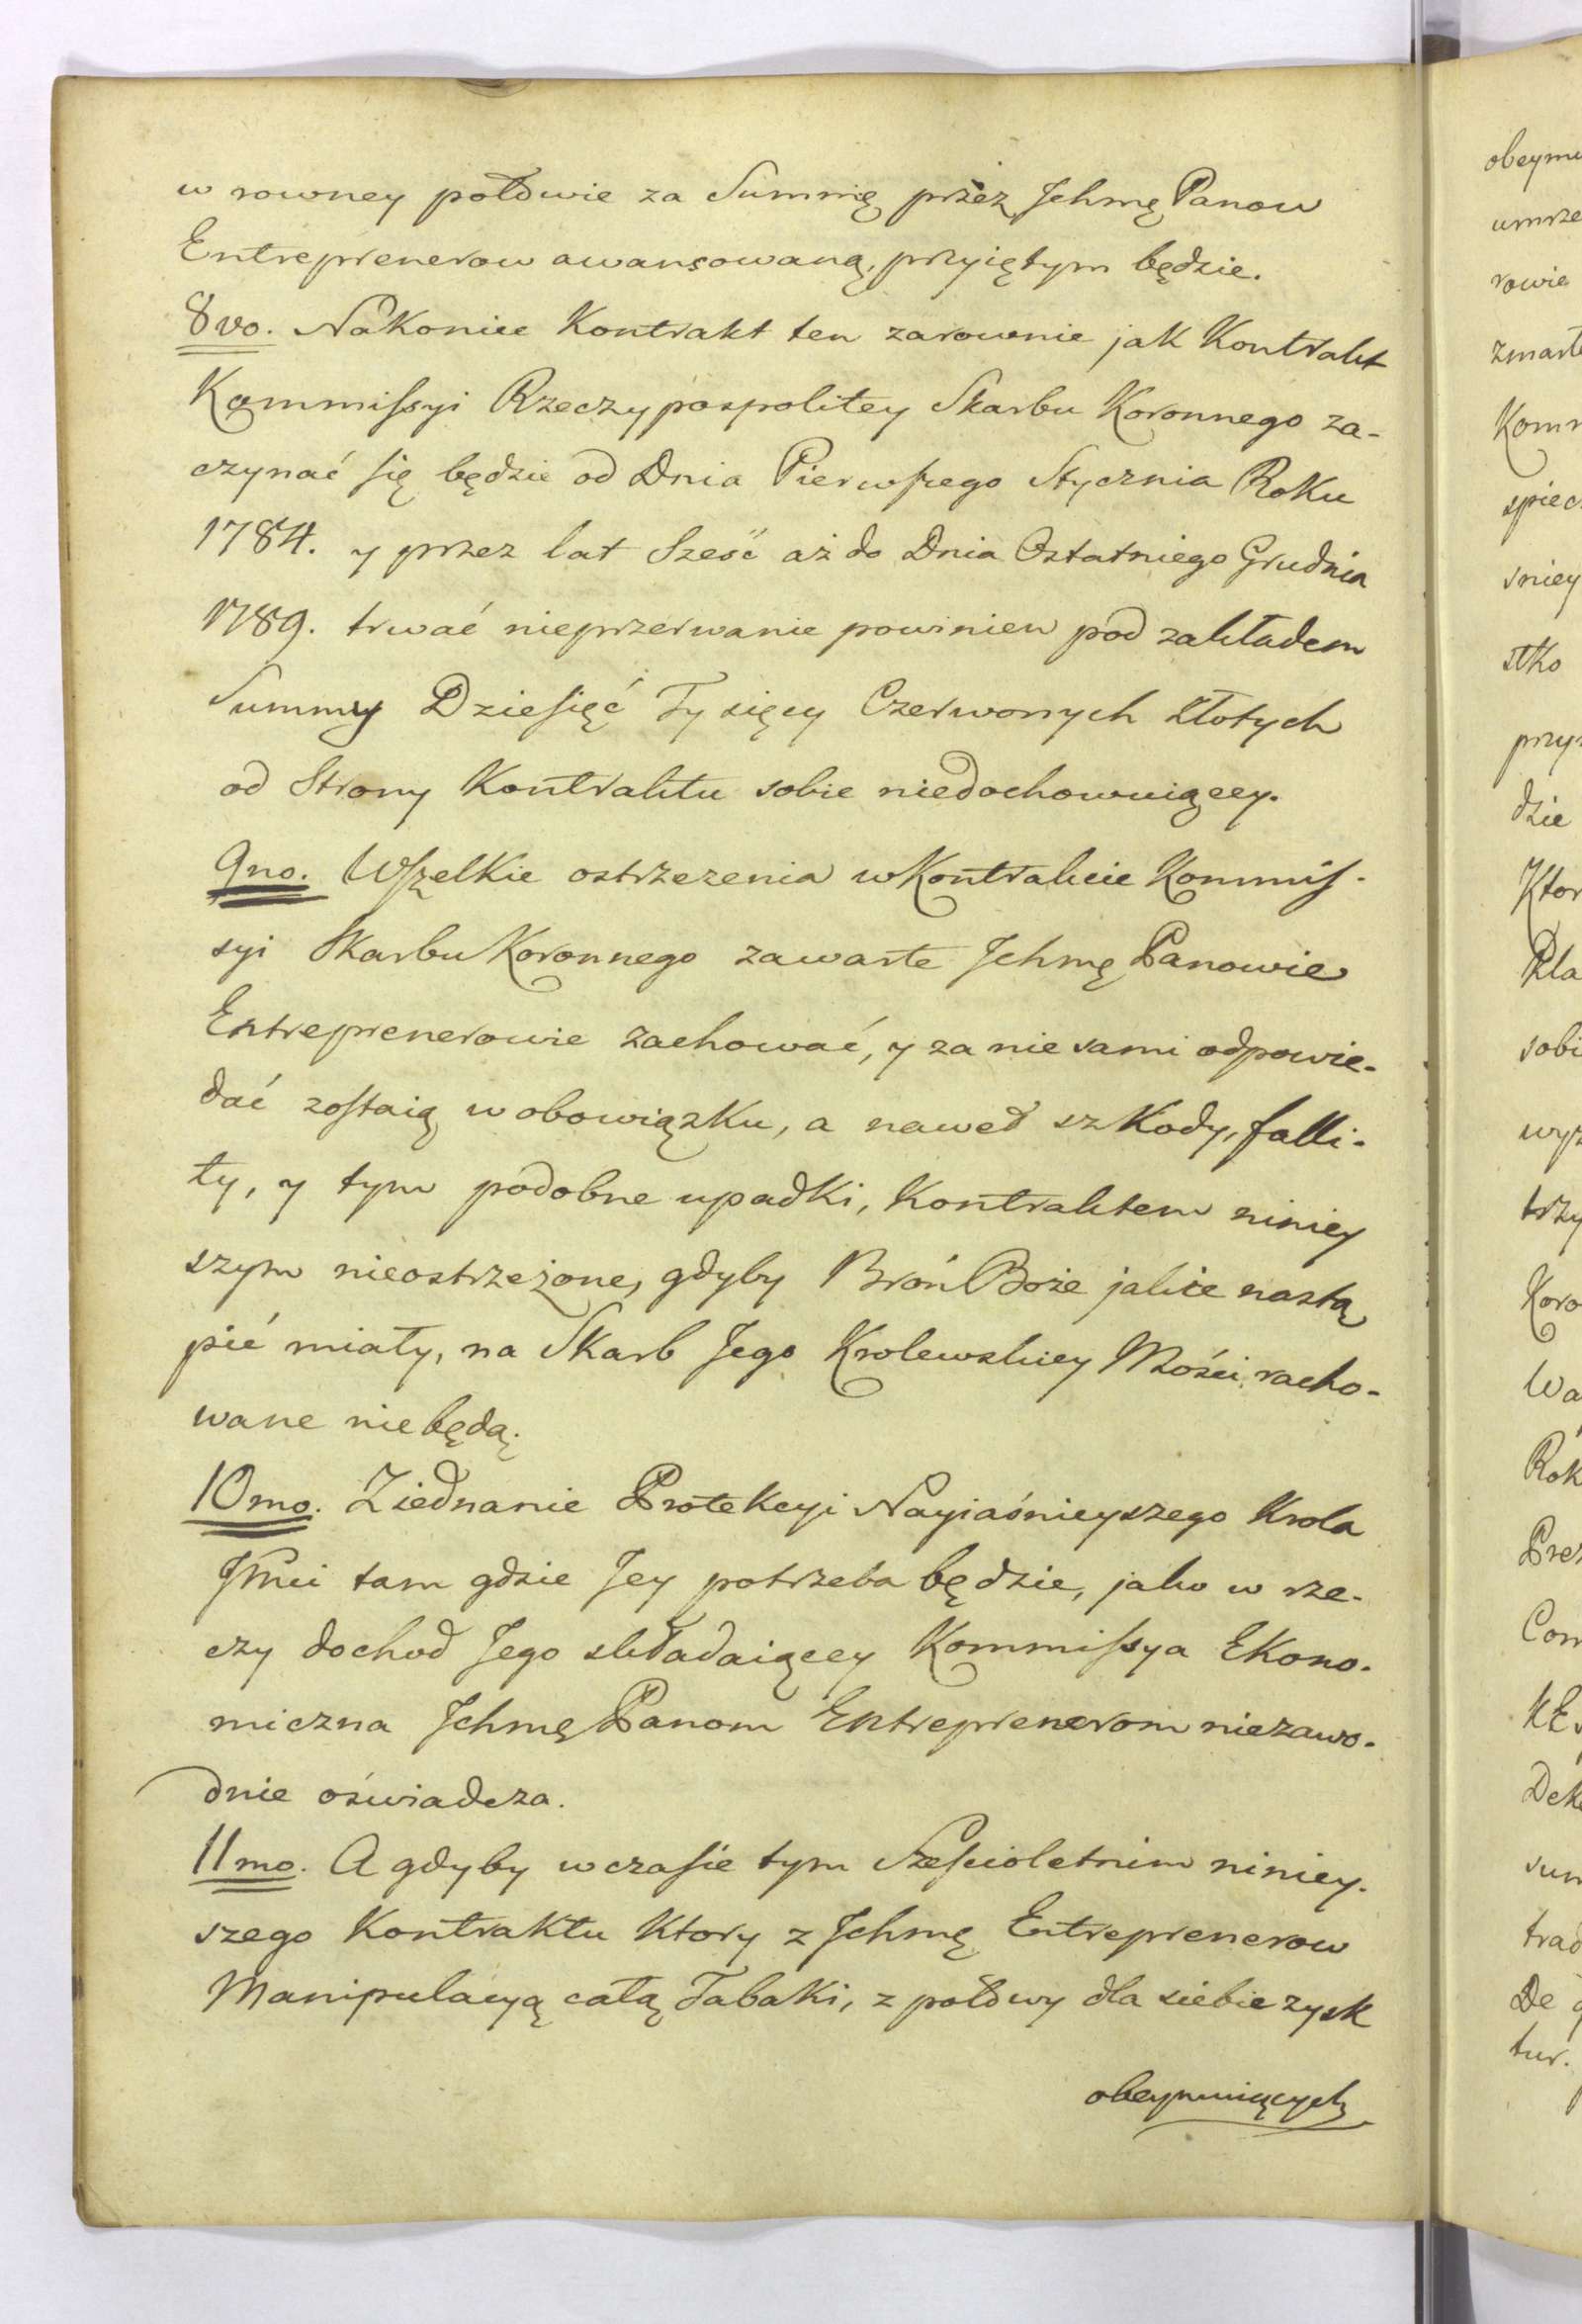 w rowney połowie za Summę przez Jchmę Panow
Entreprenerow awansowaną, przyiętym będzie.
8vo. Nakoniec Kontrakt ten zarownie jak Kontrakt
Kommissyi Rzeczypospolitey Skarbu Koronnego za-
czynać się będzie od Dnia Pierwszego Stycznia Roku
1784. y przez lat Sześć aż do Dnia Ostatniego Grudnia
1789. trwać nieprzerwanie powinien pod zakładem
Summy Dziesięć Tysięcy Czerwonych złotych
od Strony Kontraktu sobie niedochowuiącey.
9no. Wszelkie ostrzezenia w Kontrakcie Kommis-
syi Skarbu Koronnego zawarte Jchmę Panowie
Entreprenerowie zachować, y za nie sami odpowie-
dać zostaią w obowiązku, a nawet szkody, falli-
ty, y tym podobne upadki, Kontraktem niniey
szym nieostrzeżone, gdyby Broń Boże jakie nastą
pić miały, na Skarb Jego Krolewskiey Mości racho-
wane niebędą.
10mo. Ziednanie Protekcyi Nayiaśnieyszego Krola
Jmci tam gdzie Jey potrzeba będzie, jako w rze-
czy dochod Jego składaiącey Kommissya Ekono-
miczna Jchmę Panom Entreprenerom niezawo-
dnie oświadcza.
11mo. A gdyby w czasie tym Sześcioletnim niniey-
szego Kontraktu Ktory z Jchmę Entreprenerow
Manipulacyą całą Tabaki, z połowy dla siebie zysk
obeymuiących
obeymu
umrze
rowie
zmarłe
Komm
spiec
sniey
stko
przy
dzie
Ktor
Pla
sobi
wyz
trzy
Koro
Wa
Rok
Prez
Com
Dek
sum
trad
De
tur.